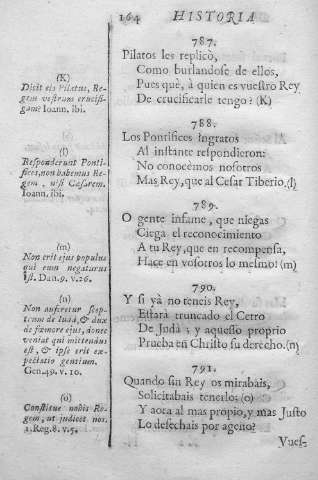 164 HISTORIA
787.
Pilatos les replicò,
Como burlandose de ellos,
Pues què, à quien es vuestro Rey
De crucificarle tengo? (K)
(K)
Dicit eis Pilatus, Regem vestrum crucifigam? Ioann. ibi.
788.
Los Pontifices ingratos
Al instante respondieron:
No conocemos nosotros
Mas Rey, que al Cesar Tiberio. (l)
(l)
Responderunt Pontifices, non habemus Regem, nisi Cæsarem.
Ioann. ibi.
789.
O gente infame, que niegas
Ciega el reconocimiento
A tu Rey, que en recompensa,
Hace en vosotros lo mesmo! (m)
(m)
Non erit ejus populus
qui eum negaturus
est. Dan. 9. v. 26.
790.
Y si yà no teneis Rey,
Estarà truncado el Cetro
De Judà; y aquesto proprio
Prueba en Christo su derecho. (n)
(n)
Non auferetur sceptrum de Iuda, & dux
de fæmore ejus, donec
veniat qui mittendus
est, & ipse erit expectatio gentium.
Gen. 49. v. 10.
791.
Quando sin Rey os mirabais,
Solicitabais tenerlo: (o)
Y aora al mas propio, y mas Justo
Lo desechais por ageno?
(o)
Constitue nobis Regem, ut judicet nos.
1. Reg. 8. v. 5.
Vues-